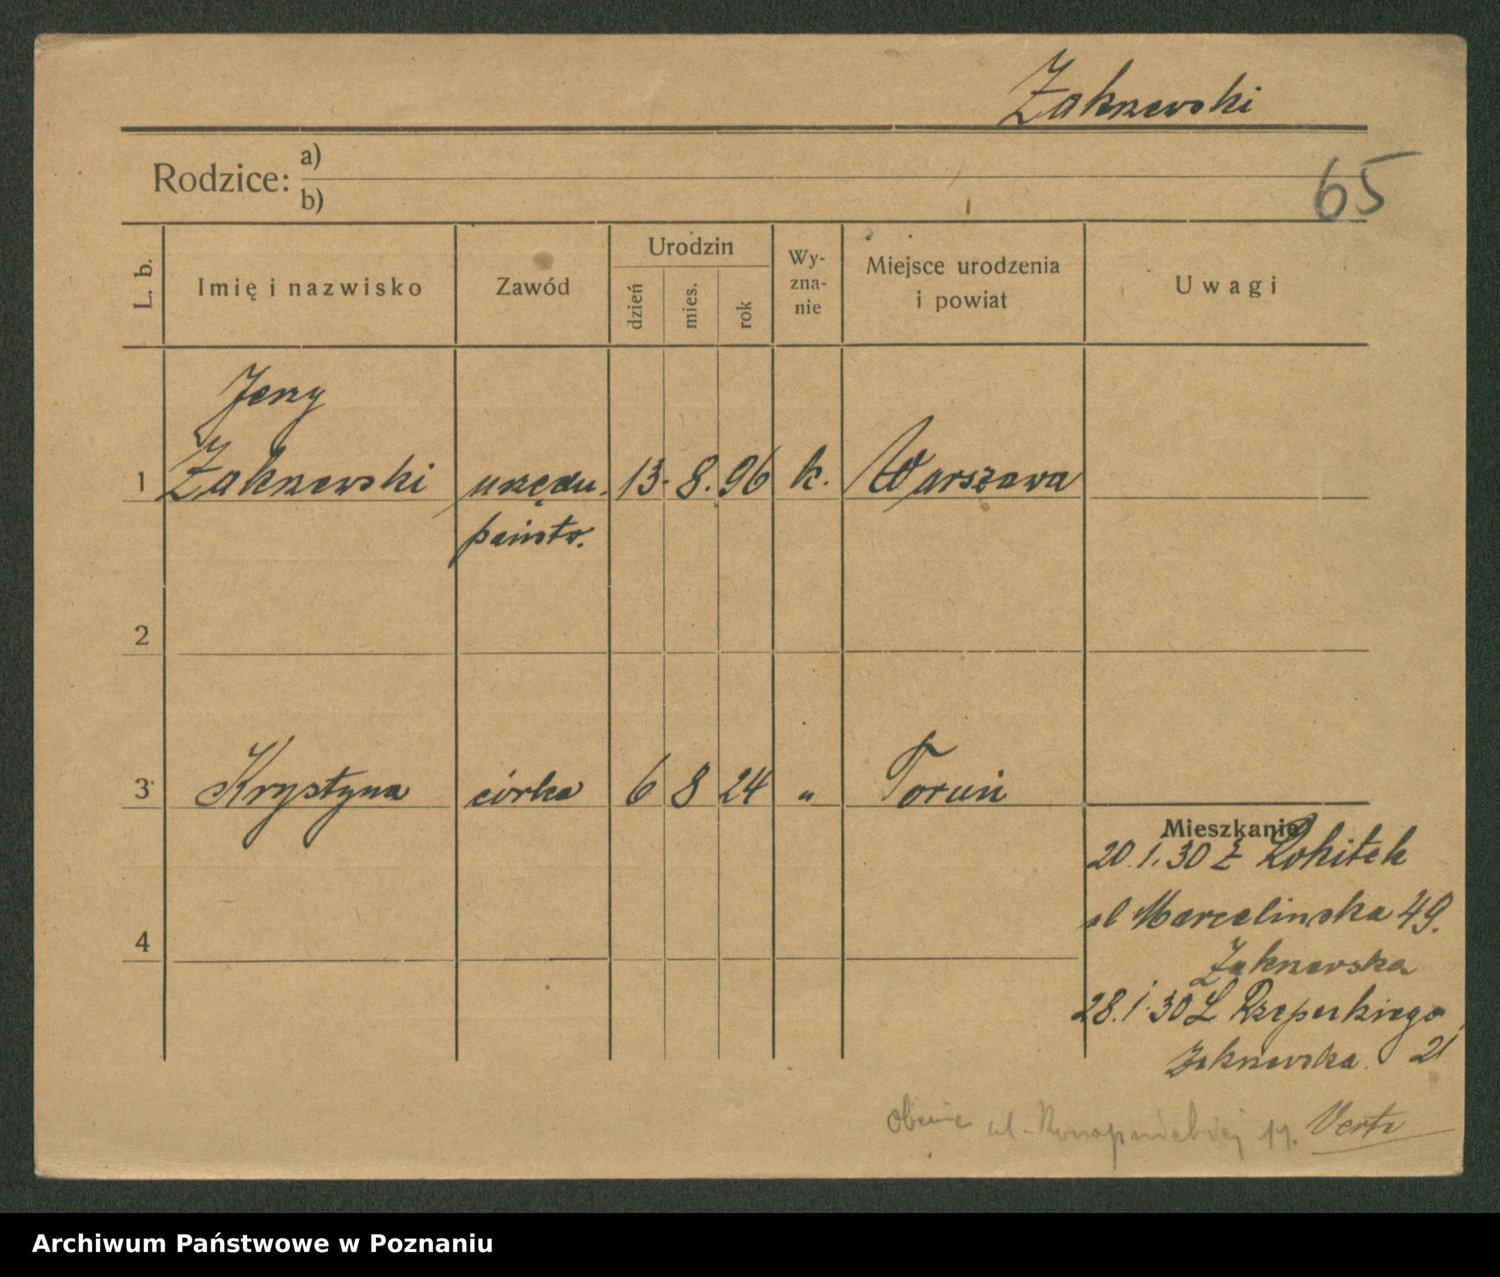 Zakrzewski
65
Rodzice: a)
b)
L. b. Imię i nazwisko Zawód Urodzin dzień mies. rok Wy-zna-nie Miejsce urodzenia i powiat Uwagi
Jerzy
1 Zakrzewski urzędn. 13. 8. 96 k. Warszawa
państw.
2
3 Krystyna córka 6 8 24 " Toruń
Mieszkanie
20.1.30 z Rokitek
ul Marcelinska 49.
Zakrzewska
4
28.1.30 L Rzepeckiego
Zakrzewska 21
Obecnie ul. 11. Verte
Archiwum Państwowe w Poznaniu